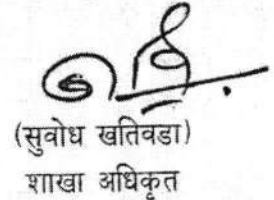 (सुवोध खतिवडा)
शाखा अधिकृत